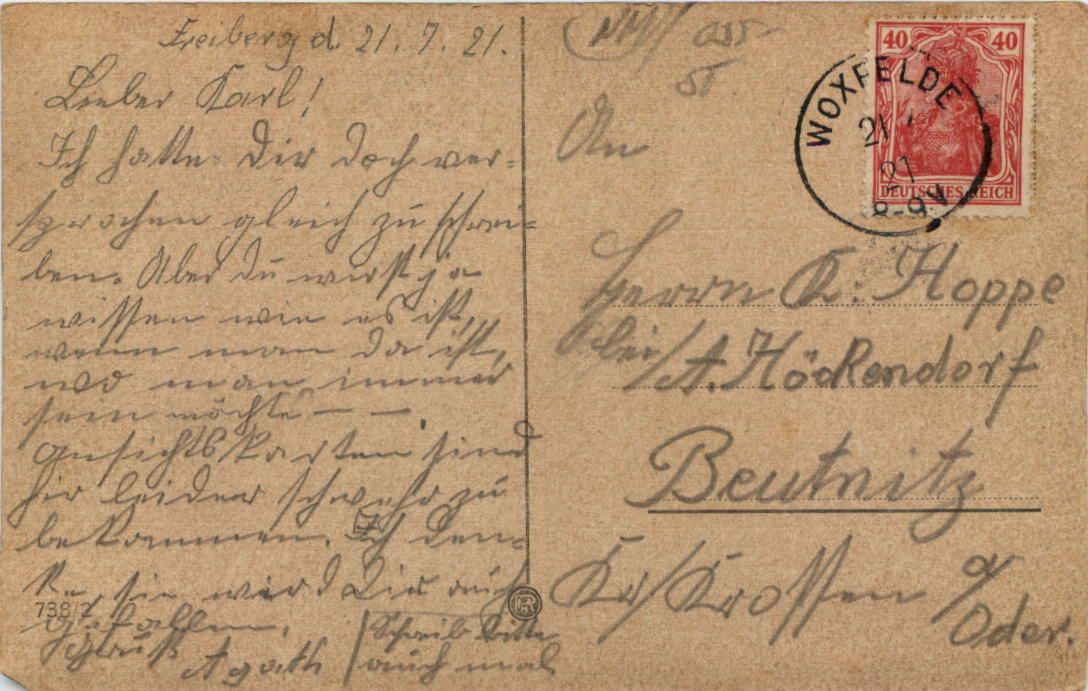 Freiberg d. 21. 7. 21.
Lieber Karl!
Ich hatte Dir doch ver-
sprochen gleich zu schrei-
ben. Aber du wirst ja
wissen wie es ist,
wenn man da ist,
wo man immer
sein möchte – – .
Ansichtskarten sind
hir leider schwehr zu
bekommen. Ich den-
ke, sie wird Dir auch
gefallen.
Gruß
Agath
Schreib bitte
auch mal
738/2
An
Herrn K. Hoppe
bei/A. Höckendorf
Beutnitz
Kr/Krossen a/
Oder.
40 40
DEUTSCHES REICH
WOXFELDE
21
21
8-9V